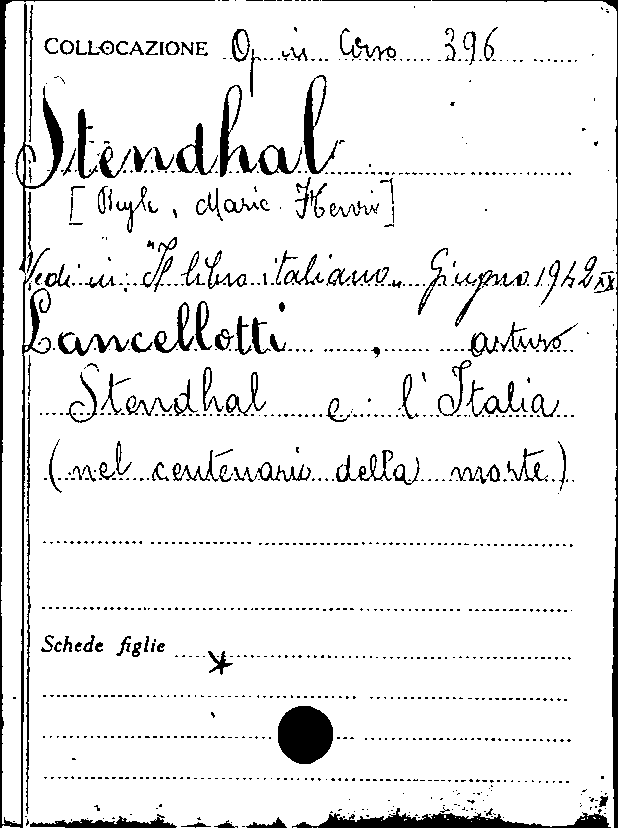 COLLOCAZIONE Op in Corso 396
Stendhal
[Beyle, Marie Henri]
Vedi in: "Il libro italiano" Giugno 1942 XX
Lancellotti, Arturo
Stendhal e l'Italia
(nel centenario della morte)
Schede figlie